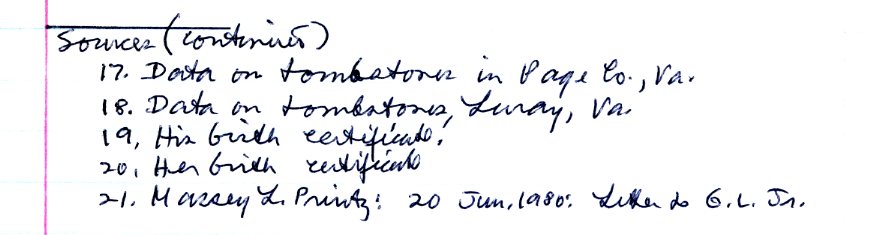 Sources (continued)
17. Data on tombstones in Page Co., Va.
18. Data on tombstones, Luray, Va.
19, His birth certificate.
20, Her birth certificate
21. Massey L. Printz: 20 Jun. 1980: Letter to G. L. Jr.